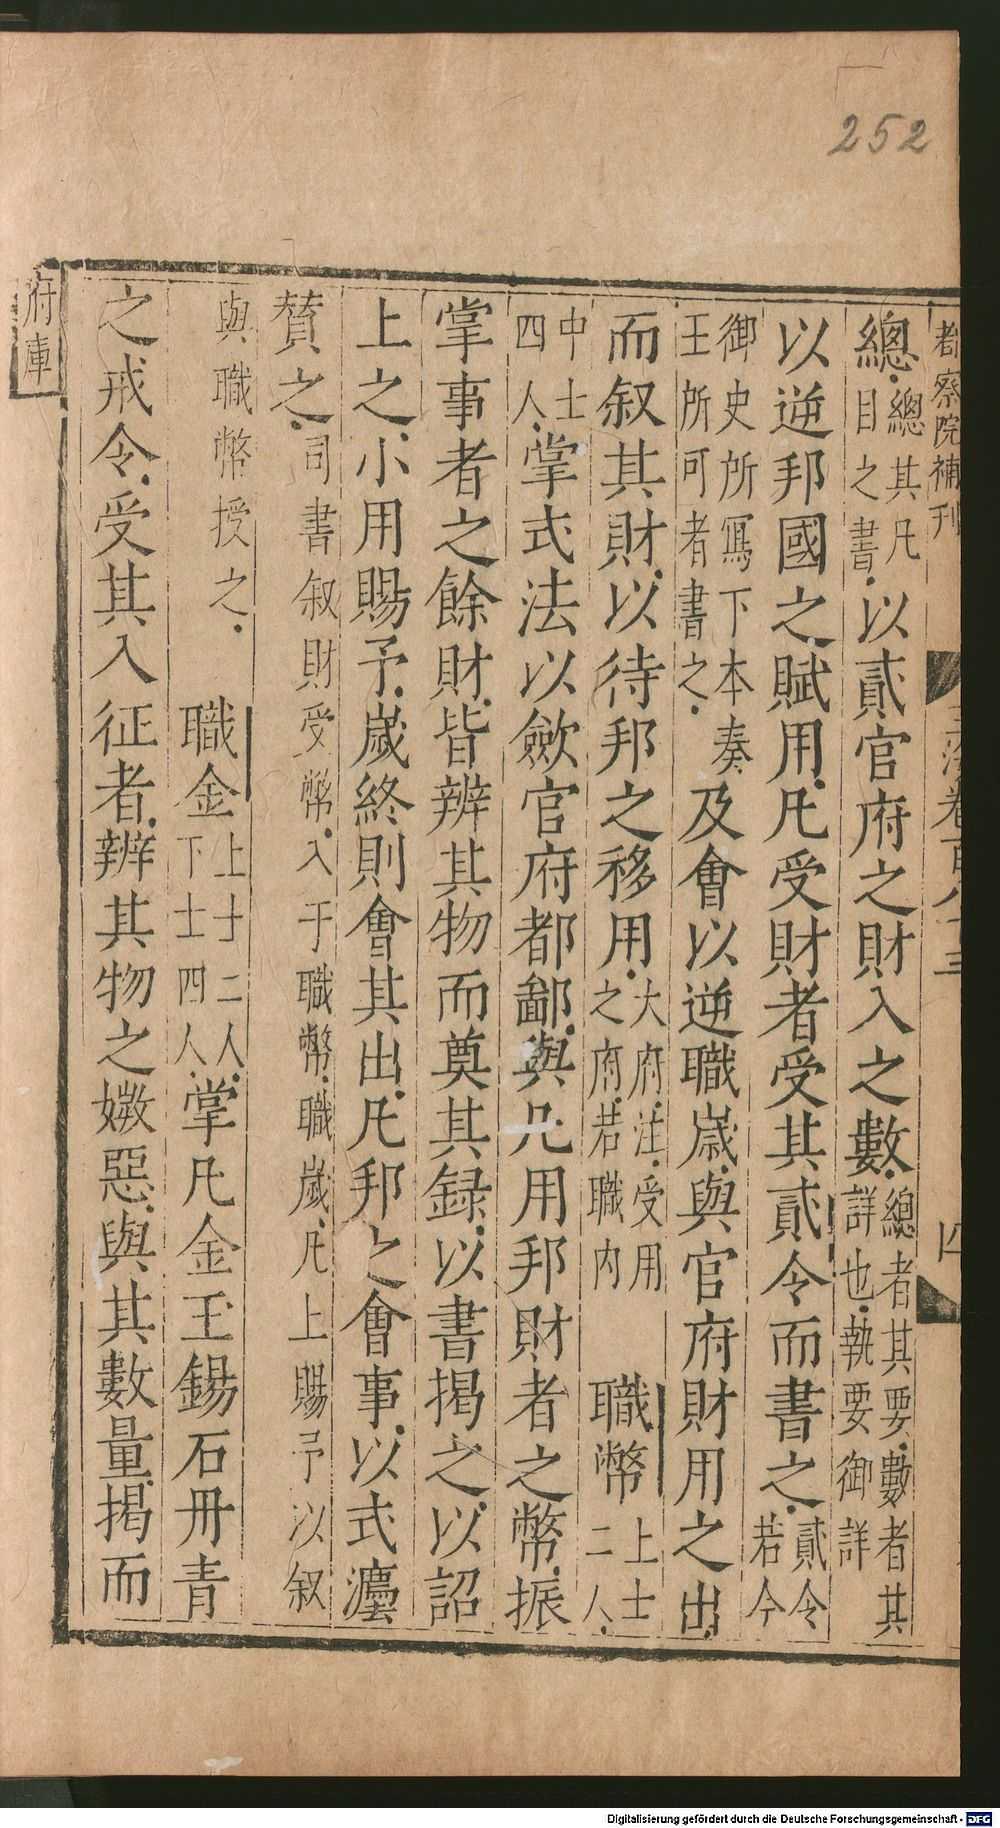 252
都察院補刊
玉海卷百八十三
四
總總其凡目之書以貳官府之財入之數總者其要數者其詳也執要御詳
以逆邦國之賦用凡受財者受其貳令而書之貳令若今
御史所寫下本奏王所可者書之及會以逆職歲與官府財用之出
而叙其財以待邦之移用大府注受用之府若職内 職幣上士二人
中士四人掌式法以斂官府都鄙與凡用邦財者之幣振
掌事者之餘財皆辨其物而奠其録以書揭之以詔
上之小用賜予歲終則會其出凡邦之會事以式灋
贊之司書叙財受幣入于職幣職歲凡上賜予以叙
與職幣授之 職金上士二人下士四人掌凡金玉錫石丹青
之戒令受其入征者辨其物之媺惡與其數量揭而
府庫
Digitalisierung gefördert durch die Deutsche Forschungsgemeinschaft - DFG